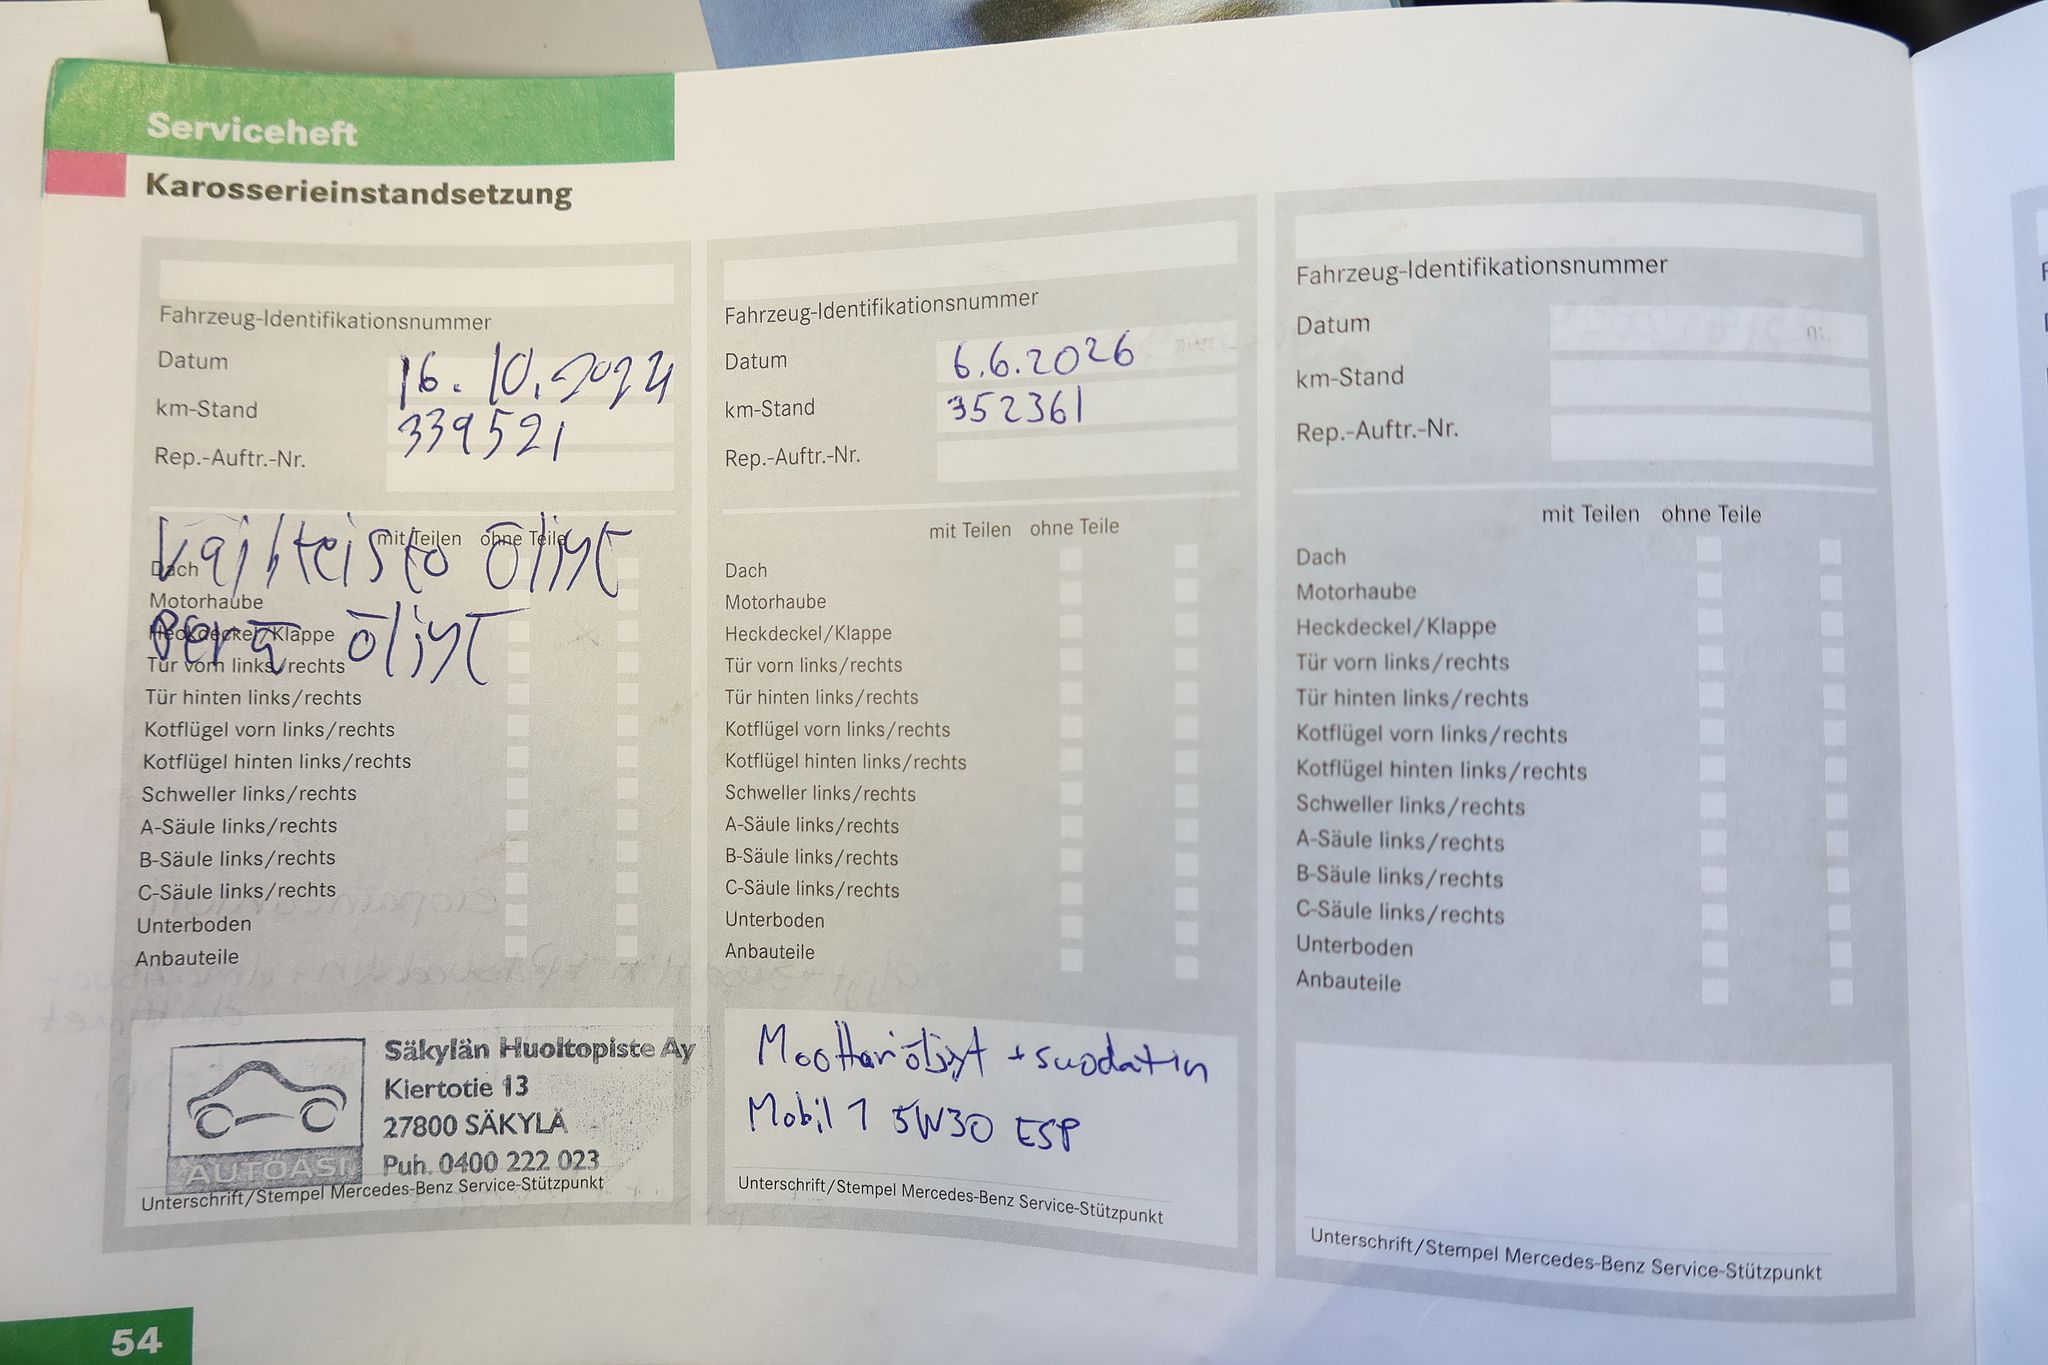 Serviceheft
Karosserieinstandsetzung
Fahrzeug-Identifikationsnummer
Datum 16.10.2024
km-Stand 339521
Rep.-Auftr.-Nr.
mit Teilen ohne Teile
Vaihteisto öljyt
Perä öljyt
Dach
Motorhaube
Heckdeckel/Klappe
Tür vorn links/rechts
Tür hinten links/rechts
Kotflügel vorn links/rechts
Kotflügel hinten links/rechts
Schweller links/rechts
A-Säule links/rechts
B-Säule links/rechts
C-Säule links/rechts
Unterboden
Anbauteile
Säkylän Huoltopiste Ay
Kiertotie 13
27800 SÄKYLÄ
Puh. 0400 222 023
AUTOASI
Unterschrift/Stempel Mercedes-Benz Service-Stützpunkt
Fahrzeug-Identifikationsnummer
Datum 6.6.2026
km-Stand 352361
Rep.-Auftr.-Nr.
mit Teilen ohne Teile
Dach
Motorhaube
Heckdeckel/Klappe
Tür vorn links/rechts
Tür hinten links/rechts
Kotflügel vorn links/rechts
Kotflügel hinten links/rechts
Schweller links/rechts
A-Säule links/rechts
B-Säule links/rechts
C-Säule links/rechts
Unterboden
Anbauteile
Moottoriöljyt + suodatin
Mobil 1 5W30 ESP
Unterschrift/Stempel Mercedes-Benz Service-Stützpunkt
Fahrzeug-Identifikationsnummer
Datum
km-Stand
Rep.-Auftr.-Nr.
mit Teilen ohne Teile
Dach
Motorhaube
Heckdeckel/Klappe
Tür vorn links/rechts
Tür hinten links/rechts
Kotflügel vorn links/rechts
Kotflügel hinten links/rechts
Schweller links/rechts
A-Säule links/rechts
B-Säule links/rechts
C-Säule links/rechts
Unterboden
Anbauteile
Unterschrift/Stempel Mercedes-Benz Service-Stützpunkt
54